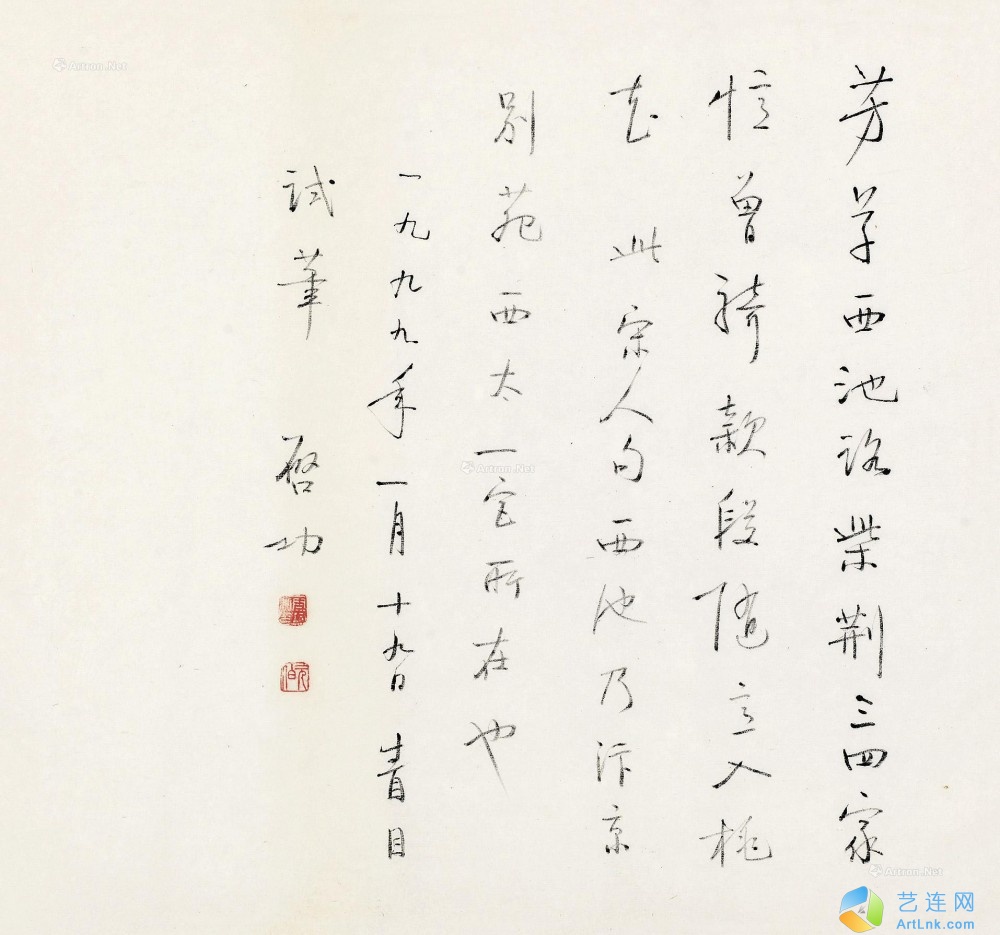 芳草西池路柴荆三四家
憶曾騎款段隨意入桃
花 此宋人句西池乃汴京
别苑西太一宫所在也
一九九九年一月十九日 眚目
試筆 啓功
Artron.Net
Artron.Net
Artron.Net
艺连网
ArtLnk.com